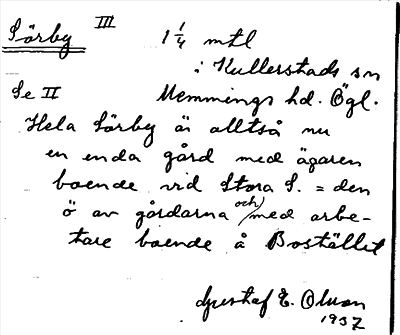 Sörby III 1 1/4 mtl
i Kullerstads sn
Se II Memmings hd. Ögl.
Hela Sörby är alltså nu
en enda gård med ägaren
boende vid Stora S. = den
ö av gårdarna och med arbe-
tare boende å Bostället
Gustaf E. Olsson
1937